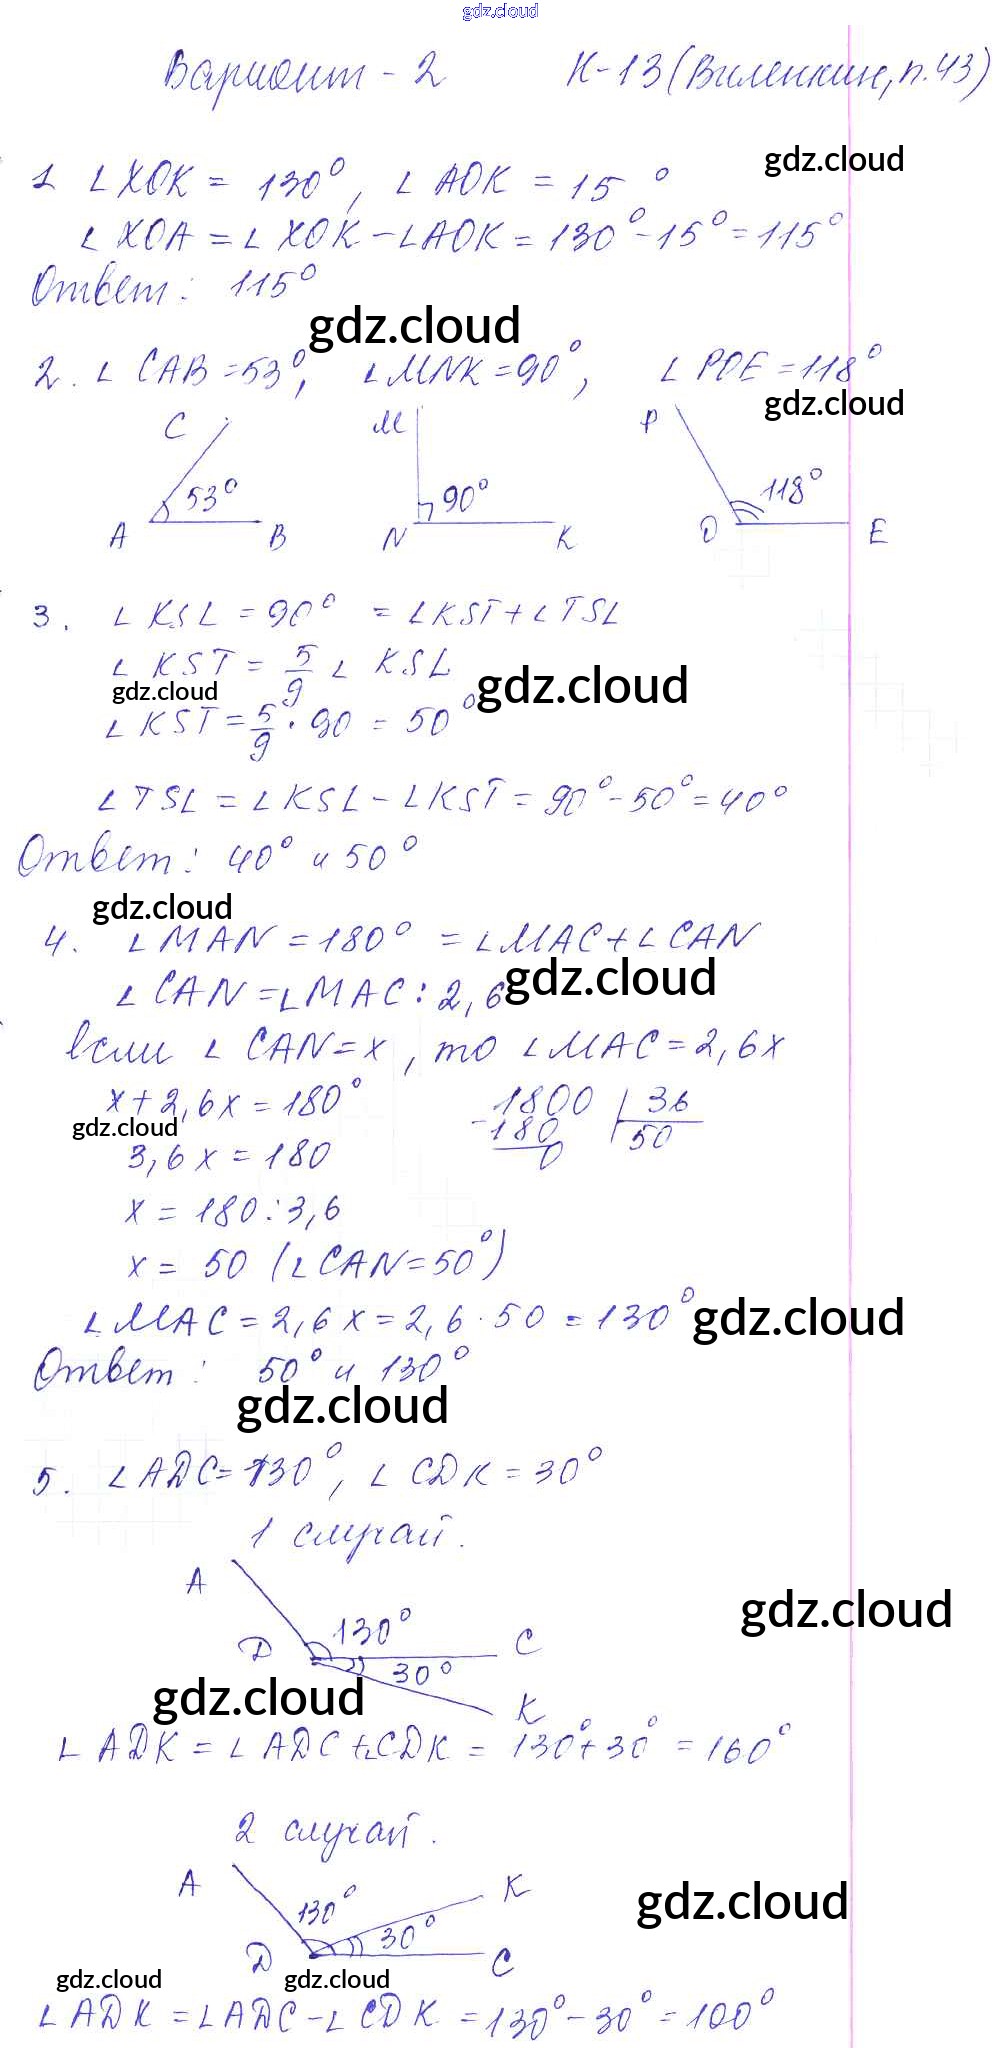 gdz.cloud
Вариант - 2 К-13 (Виленкин, п.43)
gdz.cloud
1 ∠ XOK = 130°, ∠ AOK = 15°
∠ XOA = ∠ XOK - ∠AOK = 130° - 15° = 115°
Ответ: 115°
gdz.cloud
2. ∠ CAB = 53°, ∠ MNK = 90°, ∠ POE = 118°
gdz.cloud
C M P
53° 90° 118°
A B N K O E
3. ∠ KSL = 90° = ∠KST + ∠TSL
∠ KST = 5/9 ∠ KSL
gdz.cloud gdz.cloud
∠ KST = 5/9 · 90 = 50°
∠ TSL = ∠ KSL - ∠KST = 90° - 50° = 40°
Ответ: 40° и 50°
gdz.cloud
4. ∠ MAN = 180° = ∠MAC + ∠ CAN
∠ CAN = ∠MAC : 2,6
gdz.cloud
если ∠ CAN = x, то ∠MAC = 2,6x
x + 2,6x = 180° 1800 | 36
gdz.cloud -180 50
3,6x = 180 0
x = 180 : 3,6
x = 50 (∠ CAN = 50°)
∠MAC = 2,6x = 2,6 · 50 = 130°
gdz.cloud
Ответ: 50° и 130°
gdz.cloud
5. ∠ADC = 130°, ∠ CDK = 30°
1 случай.
A
gdz.cloud
130°
D C
30°
gdz.cloud
K
∠ ADK = ∠ADC + ∠CDK = 130° + 30° = 160°
2 случай.
A K
gdz.cloud
130°
30°
D C
gdz.cloud gdz.cloud
∠ADK = ∠ADC - ∠CDK = 130° - 30° = 100°